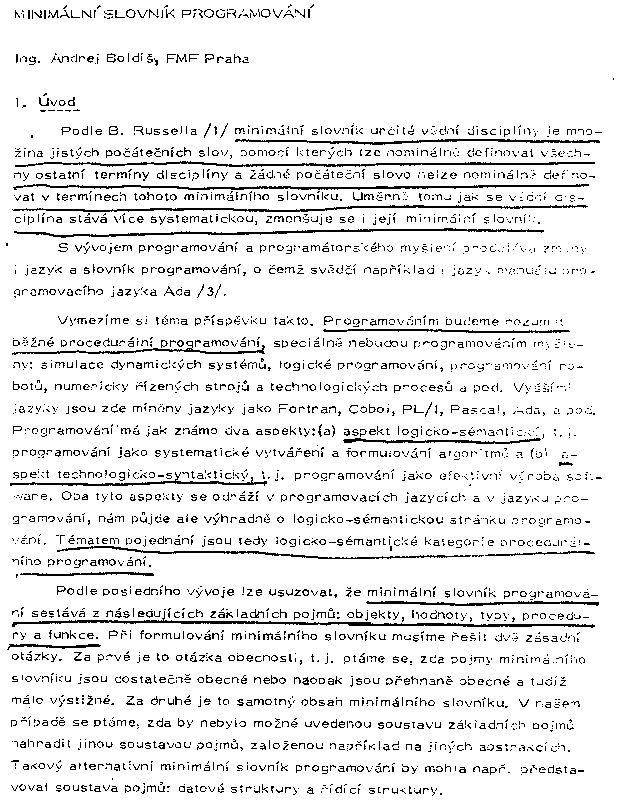 MINIMÁLNÍ SLOVNÍK PROGRAMOVÁNÍ
Ing. Andrej Boldiš, FMF Praha
1. Úvod
Podle B. Russella /1/ minimální slovník určité vědní disciplíny je mno-
žina jistých počátečních slov, pomocí kterých lze nominálně definovat všech-
ny ostatní termíny disciplíny a žádné počáteční slovo nelze nominálně defino-
vat v termínech tohoto minimálního slovníku. Úměrně tomu jak se vědní dis-
ciplína stává více systematickou, zmenšuje se i její minimální slovník.
S vývojem programování a programátorského myšlení prodělává změny
i jazyk a slovník programování, o čemž svědčí například i jazyk manuálu pro-
gramovacího jazyka Ada /3/.
Vymezíme si téma příspěvku takto. Programováním budeme rozumět
běžné procedurální programování, speciálně nebudou programováním myšle-
ny: simulace dynamických systémů, logické programování, programování ro-
botů, numericky řízených strojů a technologických procesů a pod. Vyššími
jazyky jsou zde míněny jazyky jako Fortran, Cobol, PL/I, Pascal, Ada, a pod.
Programování má jak známo dva aspekty:(a) aspekt logicko-sémantický, t.j.
programování jako systematické vytváření a formulování algoritmů a (b) a-
spekt technologicko-syntaktický, t.j. programování jako efektivní výroba soft-
ware. Oba tyto aspekty se odráží v programovacích jazycích a v jazyku pro-
gramování, nám půjde ale výhradně o logicko-sémantickou stránku programo-
vání. Tématem pojednání jsou tedy logicko-sémantické kategorie procedurál-
ního programování.
Podle posledního vývoje lze usuzovat, že minimální slovník programová-
ní sestává z následujících základních pojmů: objekty, hodnoty, typy, procedu-
ry a funkce. Při formulování minimálního slovníku musíme řešit dvě zásadní
otázky. Za prvé je to otázka obecnosti, t.j. ptáme se, zda pojmy minimálního
slovníku jsou dostatečně obecné nebo naopak jsou přehnaně obecné a tudíž
málo výstižné. Za druhé je to samotný obsah minimálního slovníku. V našem
případě se ptáme, zda by nebylo možné uvedenou soustavu základních pojmů
nahradit jinou soustavou pojmů, založenou například na jiných abstrakcích.
Takový alternativní minimální slovník programování by mohla např. předsta-
vovat soustava pojmů: datové struktury a řídící struktury.